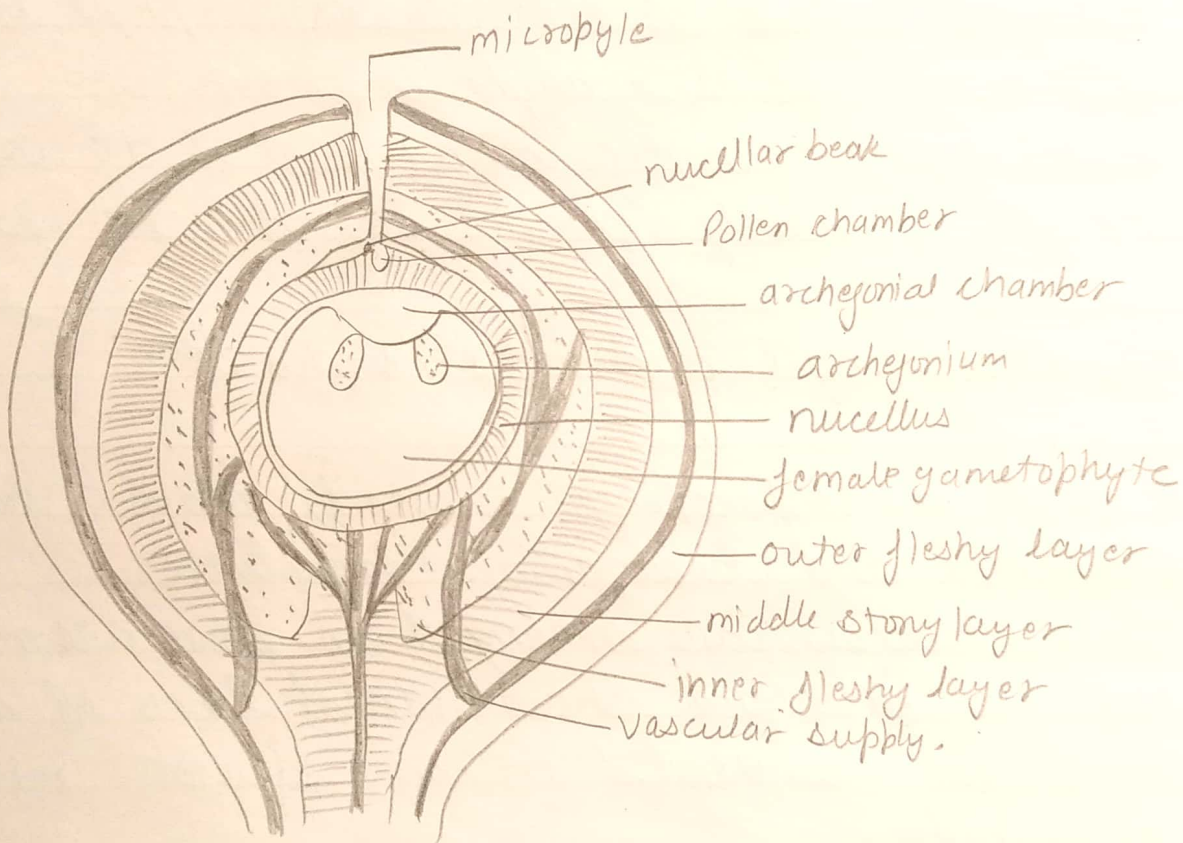 micropyle
nucellar beak
Pollen chamber
archegonial chamber
archegonium
nucellus
female gametophyte
outer fleshy layer
middle stony layer
inner fleshy layer
vascular supply.